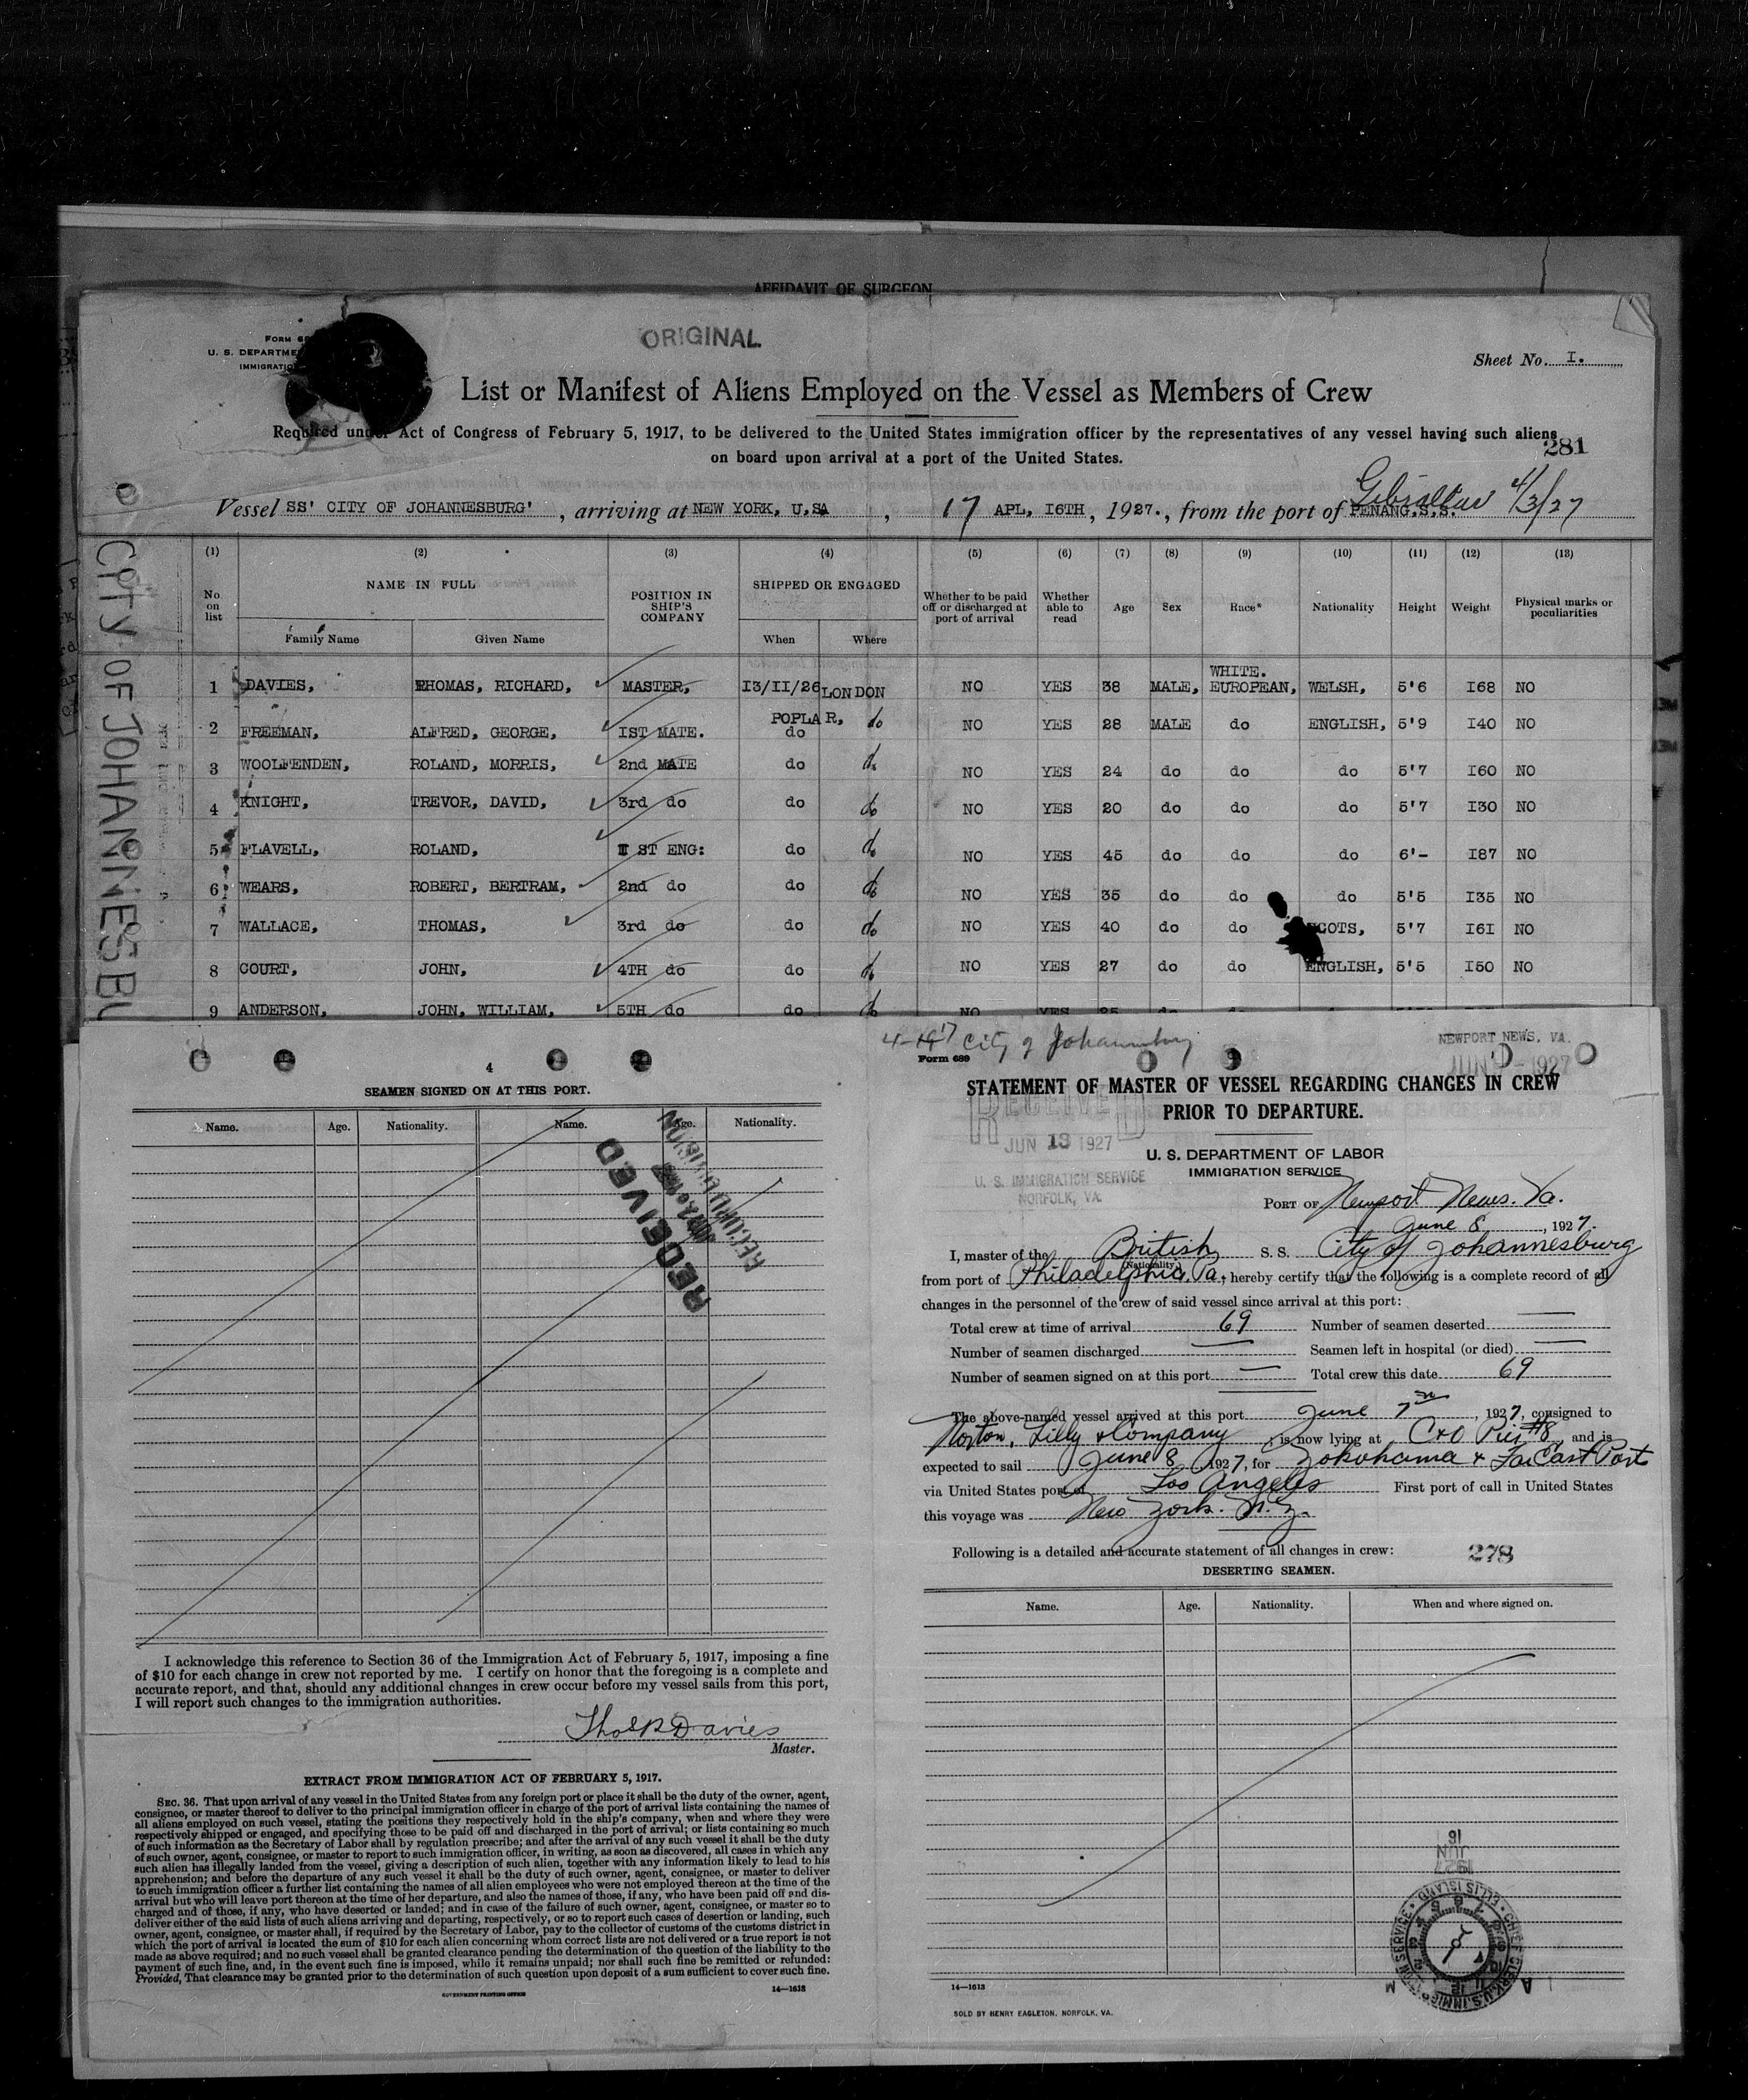 AFFIDAVIT OF SURGEON
ORIGINAL
U. S. DEPARTME
IMMIGRATIO
Sheet No. I.
List or Manifest of Aliens Employed on the Vessel as Members of Crew
Required under Act of Congress of February 5, 1917, to be delivered to the United States immigration officer by the representatives of any vessel having such aliens
on board upon arrival at a port of the United States.
281
Vessel SS' CITY OF JOHANNESBURG' , arriving at NEW YORK, U.SA , 17 APL, I6TH, 1927., from the port of PENANG.S.S. Gibraltar 4/3/27
CITY OF JOHANNESBU
(1) (2) (3) (4) (5) (6) (7) (8) (9) (10) (11) (12) (13)
No. on list NAME IN FULL POSITION IN SHIP'S COMPANY SHIPPED OR ENGAGED Whether to be paid off or discharged at port of arrival Whether able to read Age Sex Race* Nationality Height Weight Physical marks or peculiarities
Family Name Given Name When Where
1 DAVIES, THOMAS, RICHARD, MASTER, I3/II/26 LONDON NO YES 38 MALE, WHITE. EUROPEAN, WELSH, 5'6 I68 NO
2 FREEMAN, ALFRED, GEORGE, IST MATE. POPLAR, do do NO YES 28 MALE do ENGLISH, 5'9 I40 NO
3 WOOLFENDEN, ROLAND, MORRIS, 2nd MATE do do NO YES 24 do do do 5'7 I60 NO
4 KNIGHT, TREVOR, DAVID, 3rd do do do NO YES 20 do do do 5'7 I30 NO
5 FLAVELL, ROLAND, I ST ENG: do do NO YES 45 do do do 6'- I87 NO
6 WEARS, ROBERT, BERTRAM, 2nd do do do NO YES 35 do do do 5'5 I35 NO
7 WALLACE, THOMAS, 3rd do do do NO YES 40 do do COTS, 5'7 I6I NO
8 COURT, JOHN, 4TH do do do NO YES 27 do do ENGLISH, 5'5 I50 NO
9 ANDERSON, JOHN, WILLIAM, 5TH do do do NO YES 25 do do
4
SEAMEN SIGNED ON AT THIS PORT.
Name. Age. Nationality. Name. Age. Nationality.
RECEIVED
RECORD DIVISION
I acknowledge this reference to Section 36 of the Immigration Act of February 5, 1917, imposing a fine
of $10 for each change in crew not reported by me. I certify on honor that the foregoing is a complete and
accurate report, and that, should any additional changes in crew occur before my vessel sails from this port,
I will report such changes to the immigration authorities.
Thos R Davies
Master.
EXTRACT FROM IMMIGRATION ACT OF FEBRUARY 5, 1917.
SEC. 36. That upon arrival of any vessel in the United States from any foreign port or place it shall be the duty of the owner, agent,
consignee, or master thereof to deliver to the principal immigration officer in charge of the port of arrival lists containing the names of
all aliens employed on such vessel, stating the positions they respectively hold in the ship's company, when and where they were
respectively shipped or engaged, and specifying those to be paid off and discharged in the port of arrival; or lists containing so much
of such information as the Secretary of Labor shall by regulation prescribe; and after the arrival of any such vessel it shall be the duty
of such owner, agent, consignee, or master to report to such immigration officer, in writing, as soon as discovered, all cases in which any
such alien has illegally landed from the vessel, giving a description of such alien, together with any information likely to lead to his
apprehension; and before the departure of any such vessel it shall be the duty of such owner, agent, consignee, or master to deliver
to such immigration officer a further list containing the names of all alien employees who were not employed thereon at the time of the
arrival but who will leave port thereon at the time of her departure, and also the names of those, if any, who have been paid off and dis-
charged and of those, if any, who have deserted or landed; and in case of the failure of such owner, agent, consignee, or master so to
deliver either of the said lists of such aliens arriving and departing, respectively, or so to report such cases of desertion or landing, such
owner, agent, consignee, or master shall, if required by the Secretary of Labor, pay to the collector of customs of the customs district in
which the port of arrival is located the sum of $10 for each alien concerning whom correct lists are not delivered or a true report is not
made as above required; and no such vessel shall be granted clearance pending the determination of the question of the liability to the
payment of such fine, and, in the event such fine is imposed, while it remains unpaid; nor shall such fine be remitted or refunded:
Provided, That clearance may be granted prior to the determination of such question upon deposit of a sum sufficient to cover such fine.
GOVERNMENT PRINTING OFFICE 14—1613
City of Johannesburg
Form 689
NEWPORT NEWS, VA.
JUN 1927
STATEMENT OF MASTER OF VESSEL REGARDING CHANGES IN CREW
PRIOR TO DEPARTURE.
RECEIVED
JUN 13 1927
U. S. IMMIGRATION SERVICE
NORFOLK, VA.
U. S. DEPARTMENT OF LABOR
IMMIGRATION SERVICE
PORT OF Newport News. Va.
June 8, 1927.
I, master of the British S. S. City of Johannesburg
(Nationality.)
from port of Philadelphia, Pa., hereby certify that the following is a complete record of all
changes in the personnel of the crew of said vessel since arrival at this port:
Total crew at time of arrival 69 Number of seamen deserted —
Number of seamen discharged — Seamen left in hospital (or died) —
Number of seamen signed on at this port — Total crew this date 69
The above-named vessel arrived at this port June 7th, 1927, consigned to
Norton, Lilly & Company, is now lying at C&O Pier #8, and is
expected to sail June 8, 1927, for Yokohama & Far East Ports
via United States port of Los Angeles First port of call in United States
this voyage was New York. N.Y.
Following is a detailed and accurate statement of all changes in crew:
278
DESERTING SEAMEN.
Name. Age. Nationality. When and where signed on.
16
JUN
1927
CHIEF CLERK, U.S. IMMIGRATION SERVICE
ELLIS ISLAND
14—1613
SOLD BY HENRY EAGLETON, NORFOLK, VA.